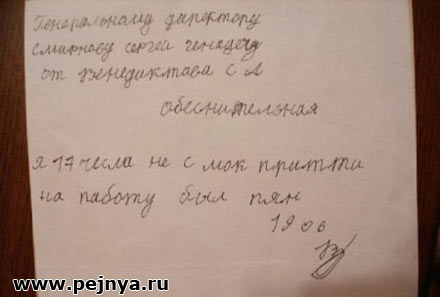 Генеральному директору
Смирнову сергей генадечу
от Венедиктова С А
обеснительная
я 17 чесла не с мок притти
на работу был пян
19 06
www.pejnya.ru